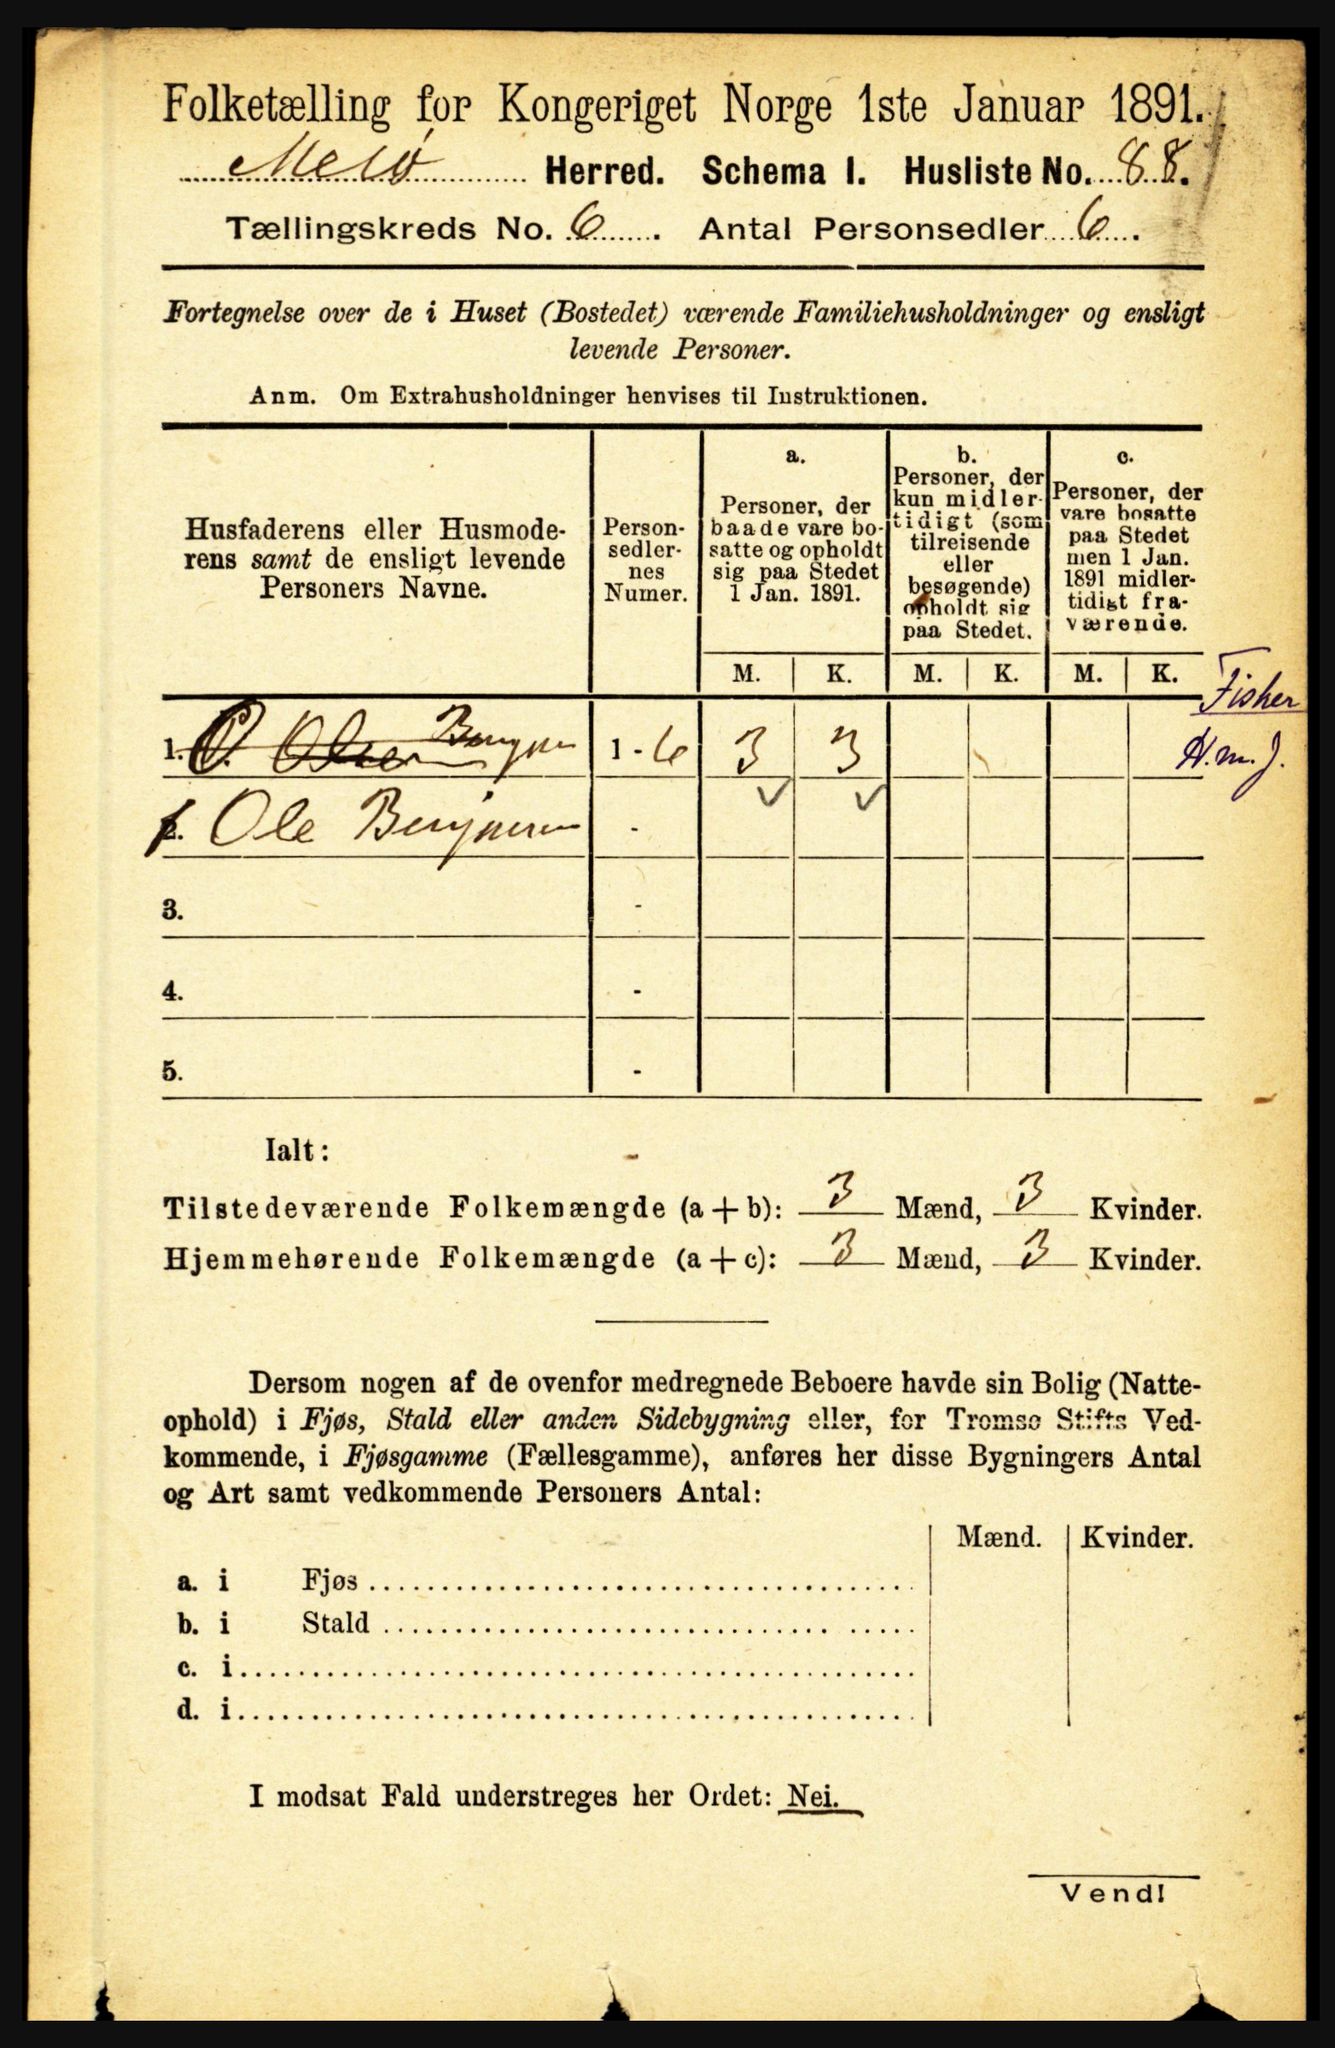 Folketælling for Kongeriget Norge 1ste Januar 1891.
Melø Herred. Schema I. Husliste No. 88.
Tællingskreds No. 6. Antal Personsedler 6.
Fortegnelse over de i Huset (Bostedet) værende Familiehusholdninger og ensligt
levende Personer.
Anm. Om Extrahusholdninger henvises til Instruktionen.
Husfaderens eller Husmode-
rens samt de ensligt levende
Personers Navne.
Person-
sedler-
nes
Numer.
a.
Personer, der
baade vare bo-
satte og opholdt
sig paa Stedet
1 Jan. 1891.
b.
Personer, der
kun midler-
tidigt (som
tilreisende
eller
besøgende)
opholdt sig
paa Stedet.
c.
Personer, der
vare bosatte
paa Stedet
men 1 Jan.
1891 midler-
tidigt fra-
værende.
M. K. M. K. M. K.
Fisker
1. Olsen 1 - 6 3 3 H.m.J.
Ole -
3. -
4. -
5. -
Ialt:
Tilstedeværende Folkemængde (a + b): 3 Mænd, 3 Kvinder.
Hjemmehørende Folkemængde (a + c): 3 Mænd, 3 Kvinder.
Dersom nogen af de ovenfor medregnede Beboere havde sin Bolig (Natte-
ophold) i Fjøs, Stald eller anden Sidebygning eller, for Tromsø Stifts Ved-
kommende, i Fjøsgamme (Fællesgamme), anføres her disse Bygningers Antal
og Art samt vedkommende Personers Antal:
Mænd. Kvinder.
a. i Fjøs
b. i Stald
c. i
d. i
I modsat Fald understreges her Ordet: Nei.
Vend!